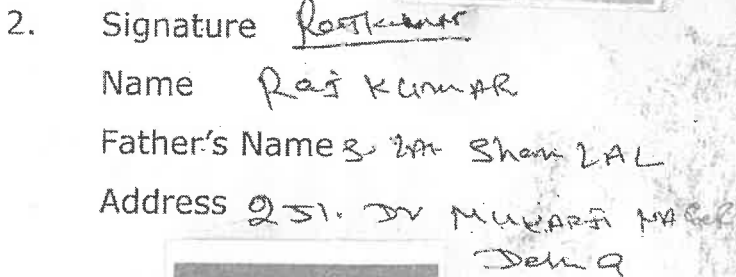 2. Signature Rajkumar
Name Raj KUMAR
Father's Name Sham LAL
Address 251. Dr MUKARJI NAGAR
Delhi 9